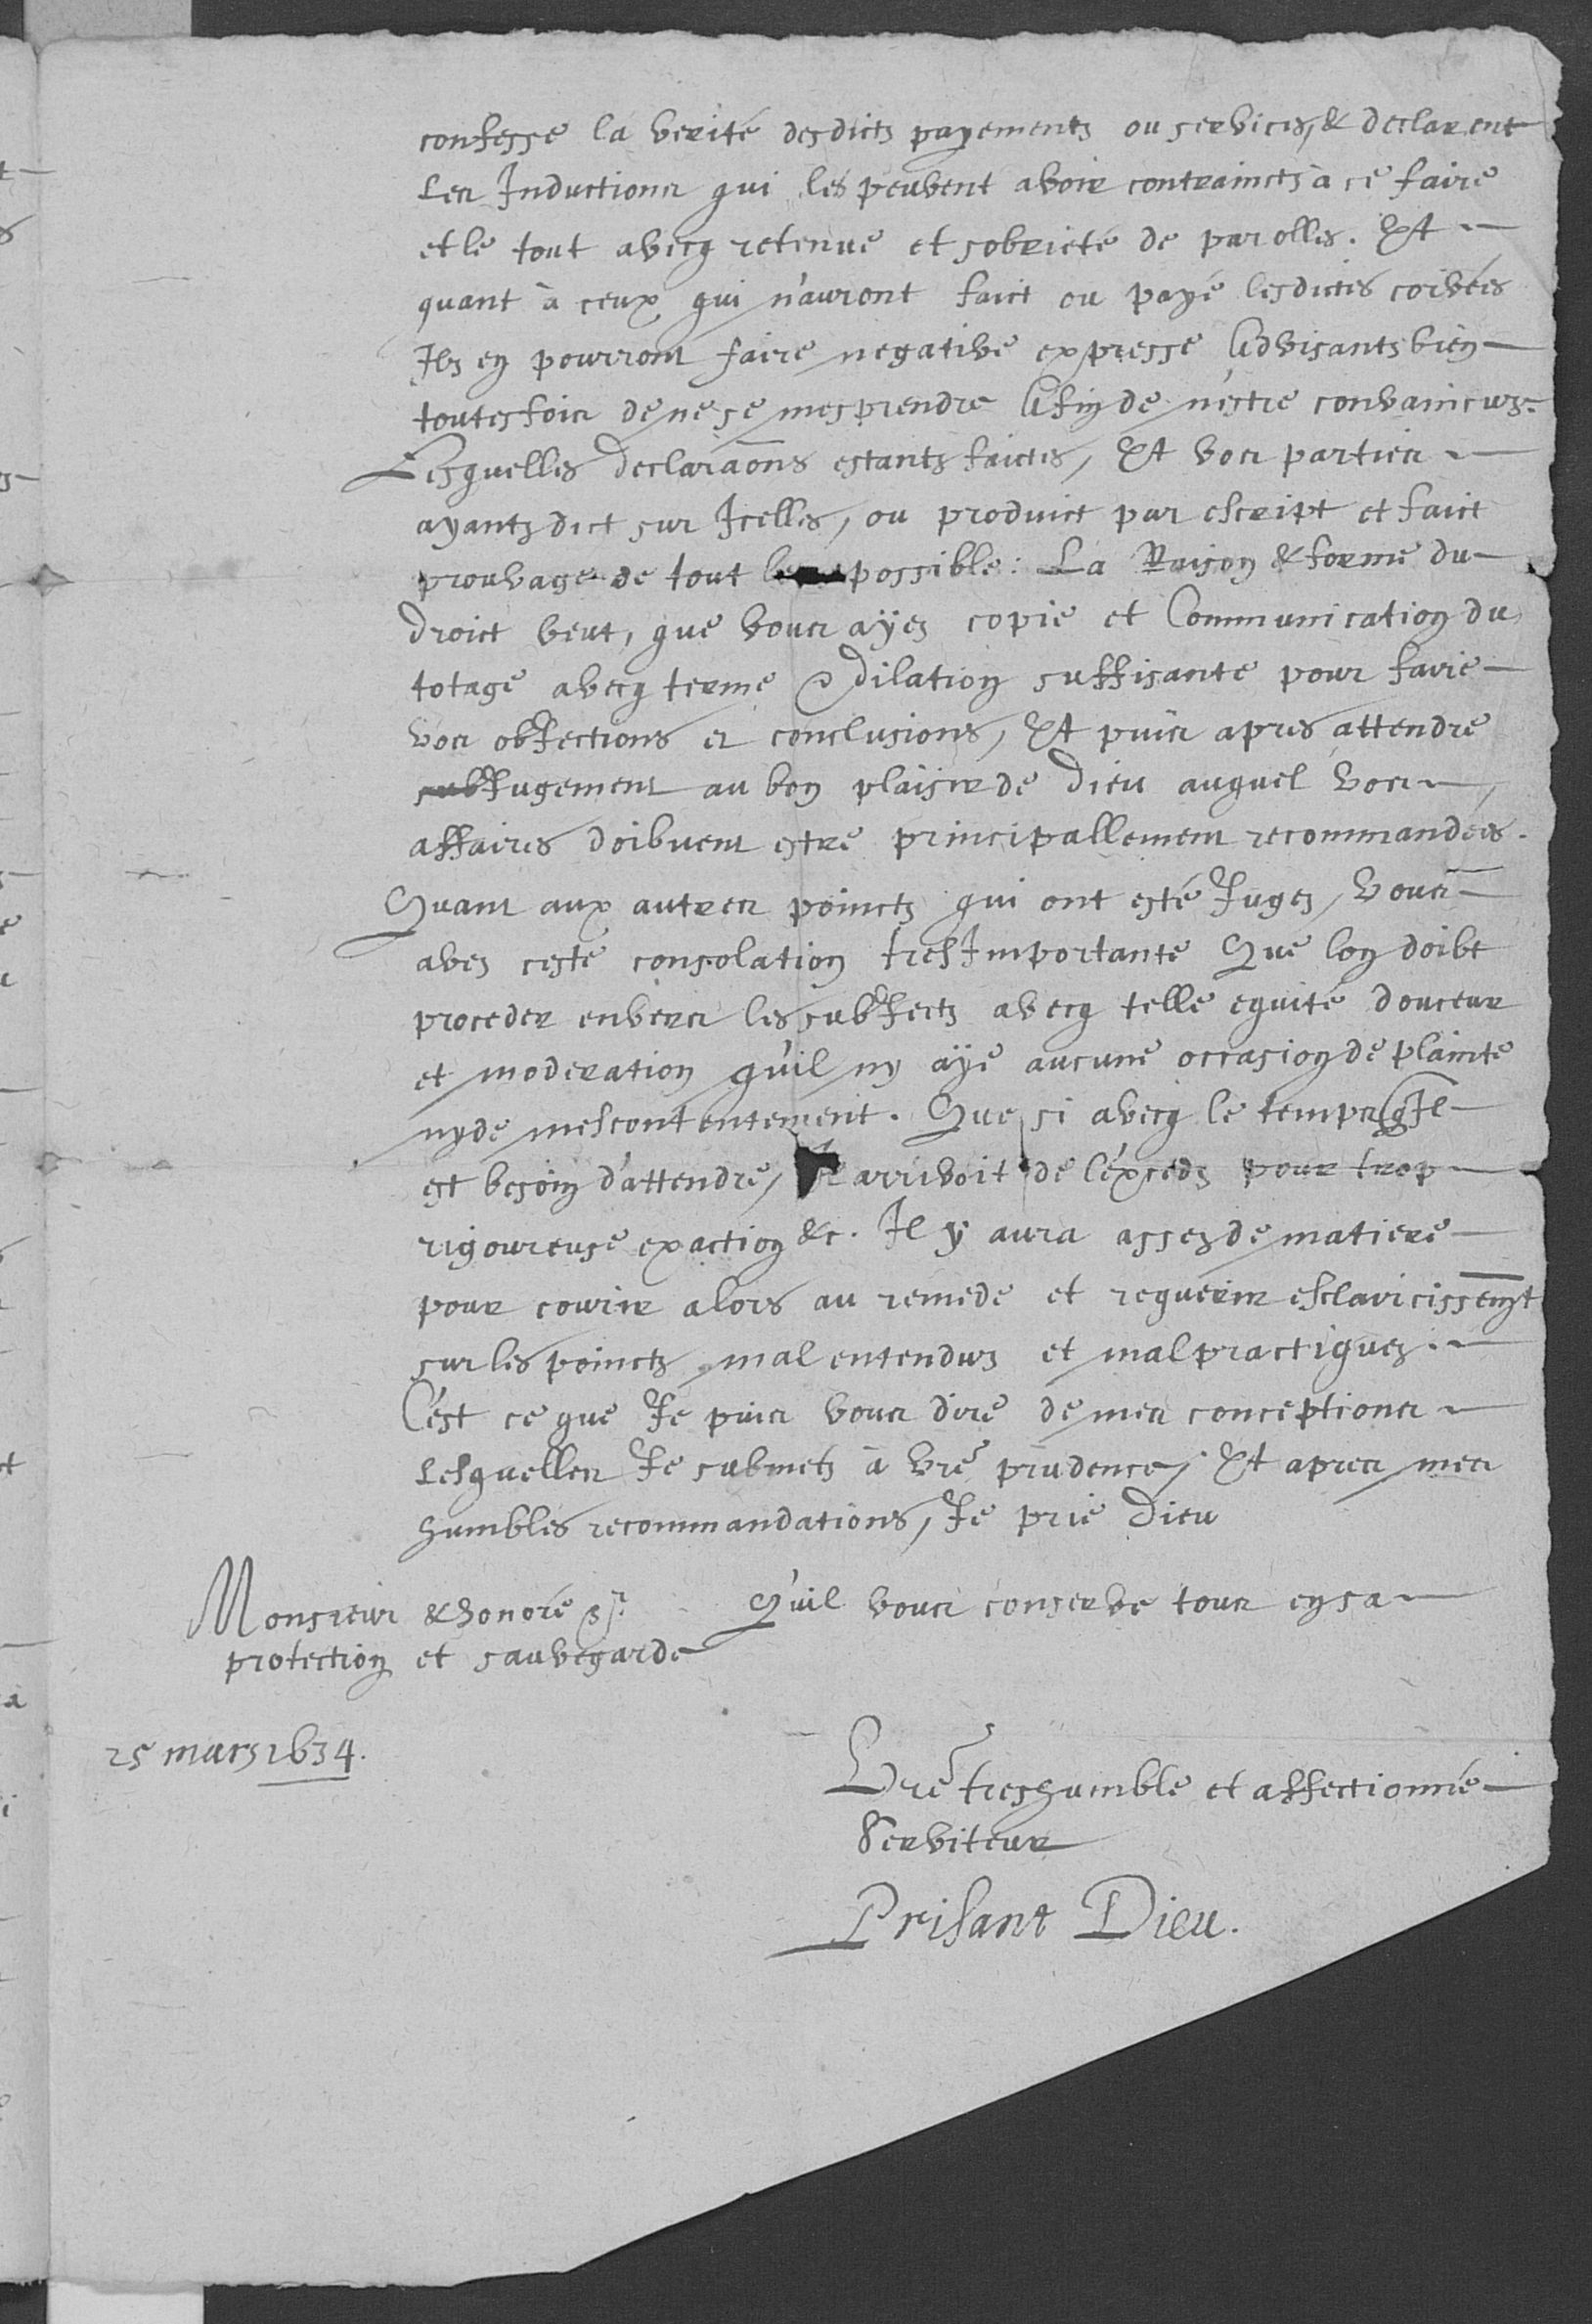 confesse la verité desdicts payements ou services, & declarent
Les Inductions qui les peuvent avoir contraincts à ce faire
et le tout avecq retenue et sobrieté de parolles. Et
quant à ceux qui n'auront faict ou payé lesdictes corvées
Ilz en pourront faire negative expresse Advisants bien
toutesfois de ne se mesprendre Afin de n'estre convaincuz.
Lesquelles declaraõns estants faictes, Et vos parties
ayants dict sur Icelles, ou produict par escript et faict
prouvage de tout possible: La Raison & forme du
droict veut, que vous ayez copie et Communication du
totage avecq terme & dilation suffisante pour faire
vos obJections et conclusions, Et puis apres attendre
Jugement au bon plaisir de Dieu auquel vos
affaires doibvent estre principallement recommandées.
Quant aux autres poincts qui ont esté Jugez, vous
avez ceste consolation tresImportante Que lon doibt
proceder envers les subJects avecq telle equité douceur
et moderation qu'il ny aye aucune occasion de plainte
ny de mescontentement. Que si avecq le temps qJl
est besoin d'attendre, arrivoit de l'excedz pour trop
rigoureuse exaction &c. Il y aura assez de matiere
pour courir alors au remede et requerir esclaricissemt
sur les poincts mal entenduz et mal practiquez.
C'est ce que Je puis vous dire de mes conceptions
Lesquelles Je submetz à vre prudence, Et apres mes
humbles recommandations, Je prie Dieu
Monsieur & honoré Sr. Qu'il vous conserve tous en sa
protection et sauvegarde
25 mars 1634.
Vre treshumble et affectionné
Serviteur
Prisant Dieu.